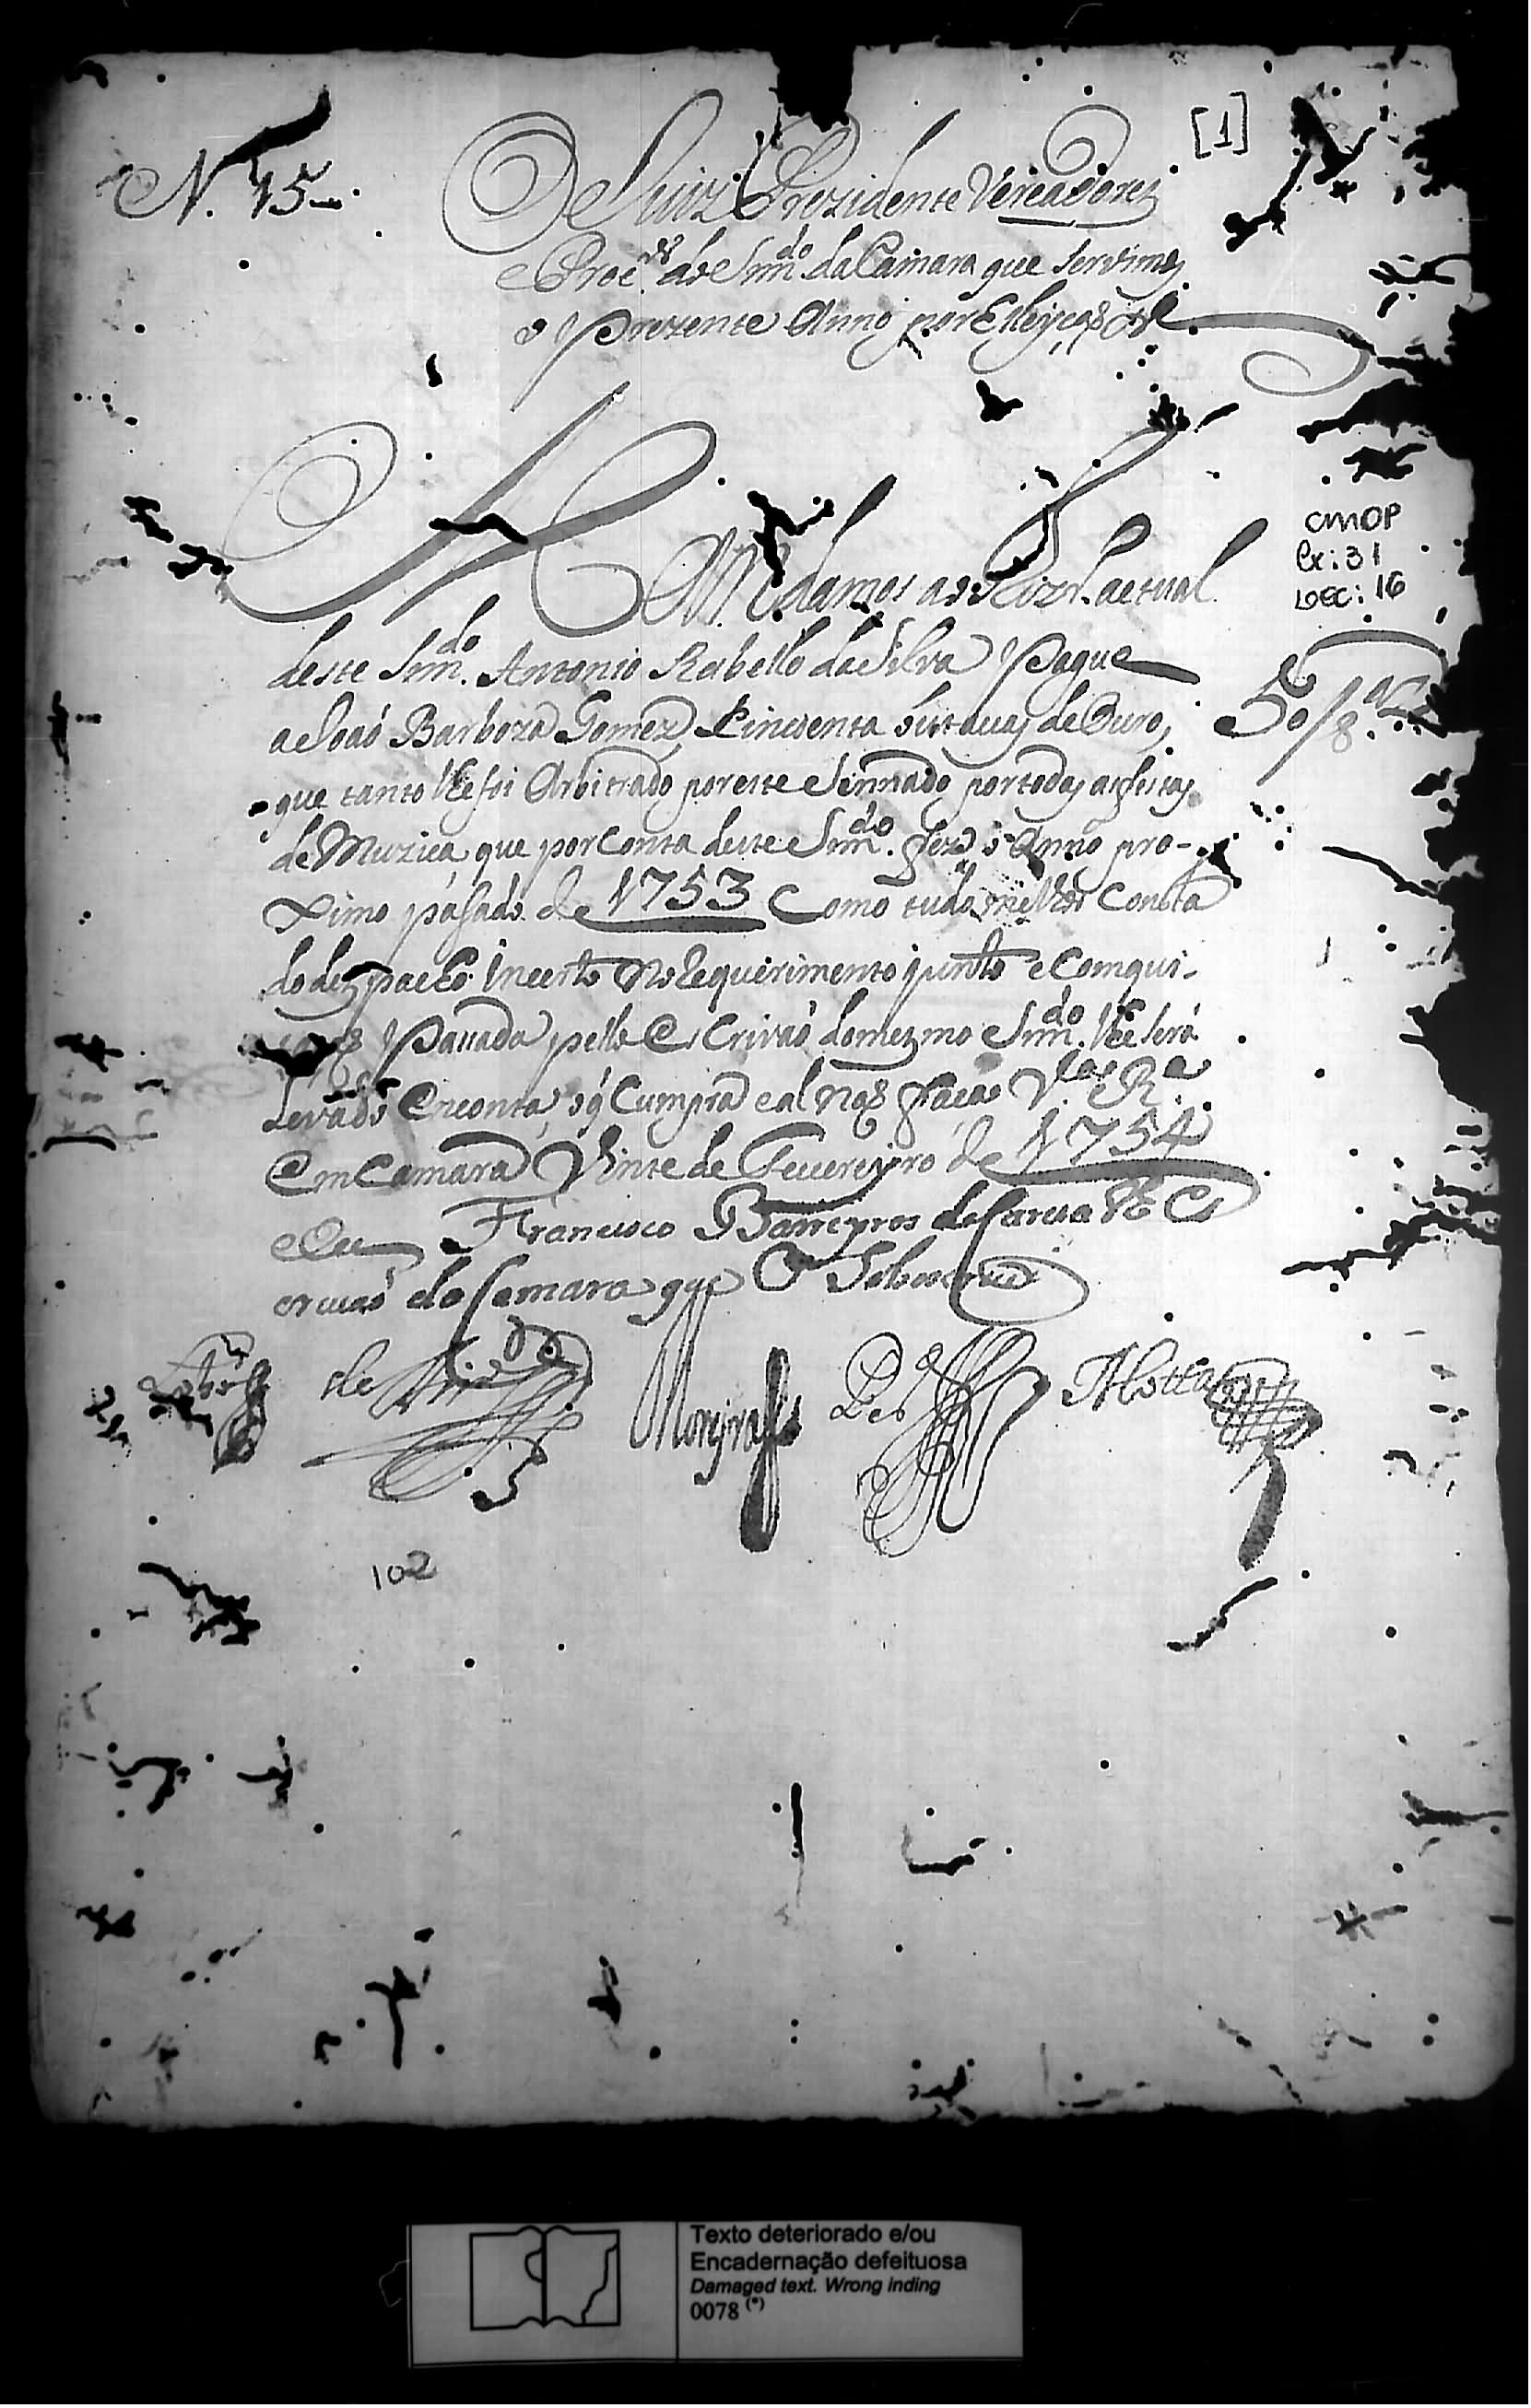 [1]
N. 15
O Juiz Prezidente Vereadores
e Proc.or do Senn.do da Camara que servimos
o prezente Anno por Elleyçaõ &.ª
Mandamos ao actual
deste Senn.do Antonio Rabello da Silva Pague
a Joaõ Barboza Gomez Sincoenta outavas de Ouro,
50/8.as
que tanto lhe foi Arbitrado por este Sennado por todas as festas
de Muzica, que por conta deste Senn.do fez o Anno pro-
ximo pasado de 1753 Como tudo milhor Consta
do dezpacho incerto No Requerimento junto e Com qui-
Pasada pello Escrivaõ do mezmo Senn.do lhe será
Levado em conta, o q̃ Cumpra e al naõ faça V.ª R.ª
Em Camara Vinte de Fevereyro de 1754
e Eu Francisco Barreyros Es
crivaõ da Camara que O Sobescrevi
de Moreyra Motta
102
CMOP
Cx: 31
DOC: 16
Texto deteriorado e/ou
Encadernação defeituosa
Damaged text. Wrong inding
0078 (*)